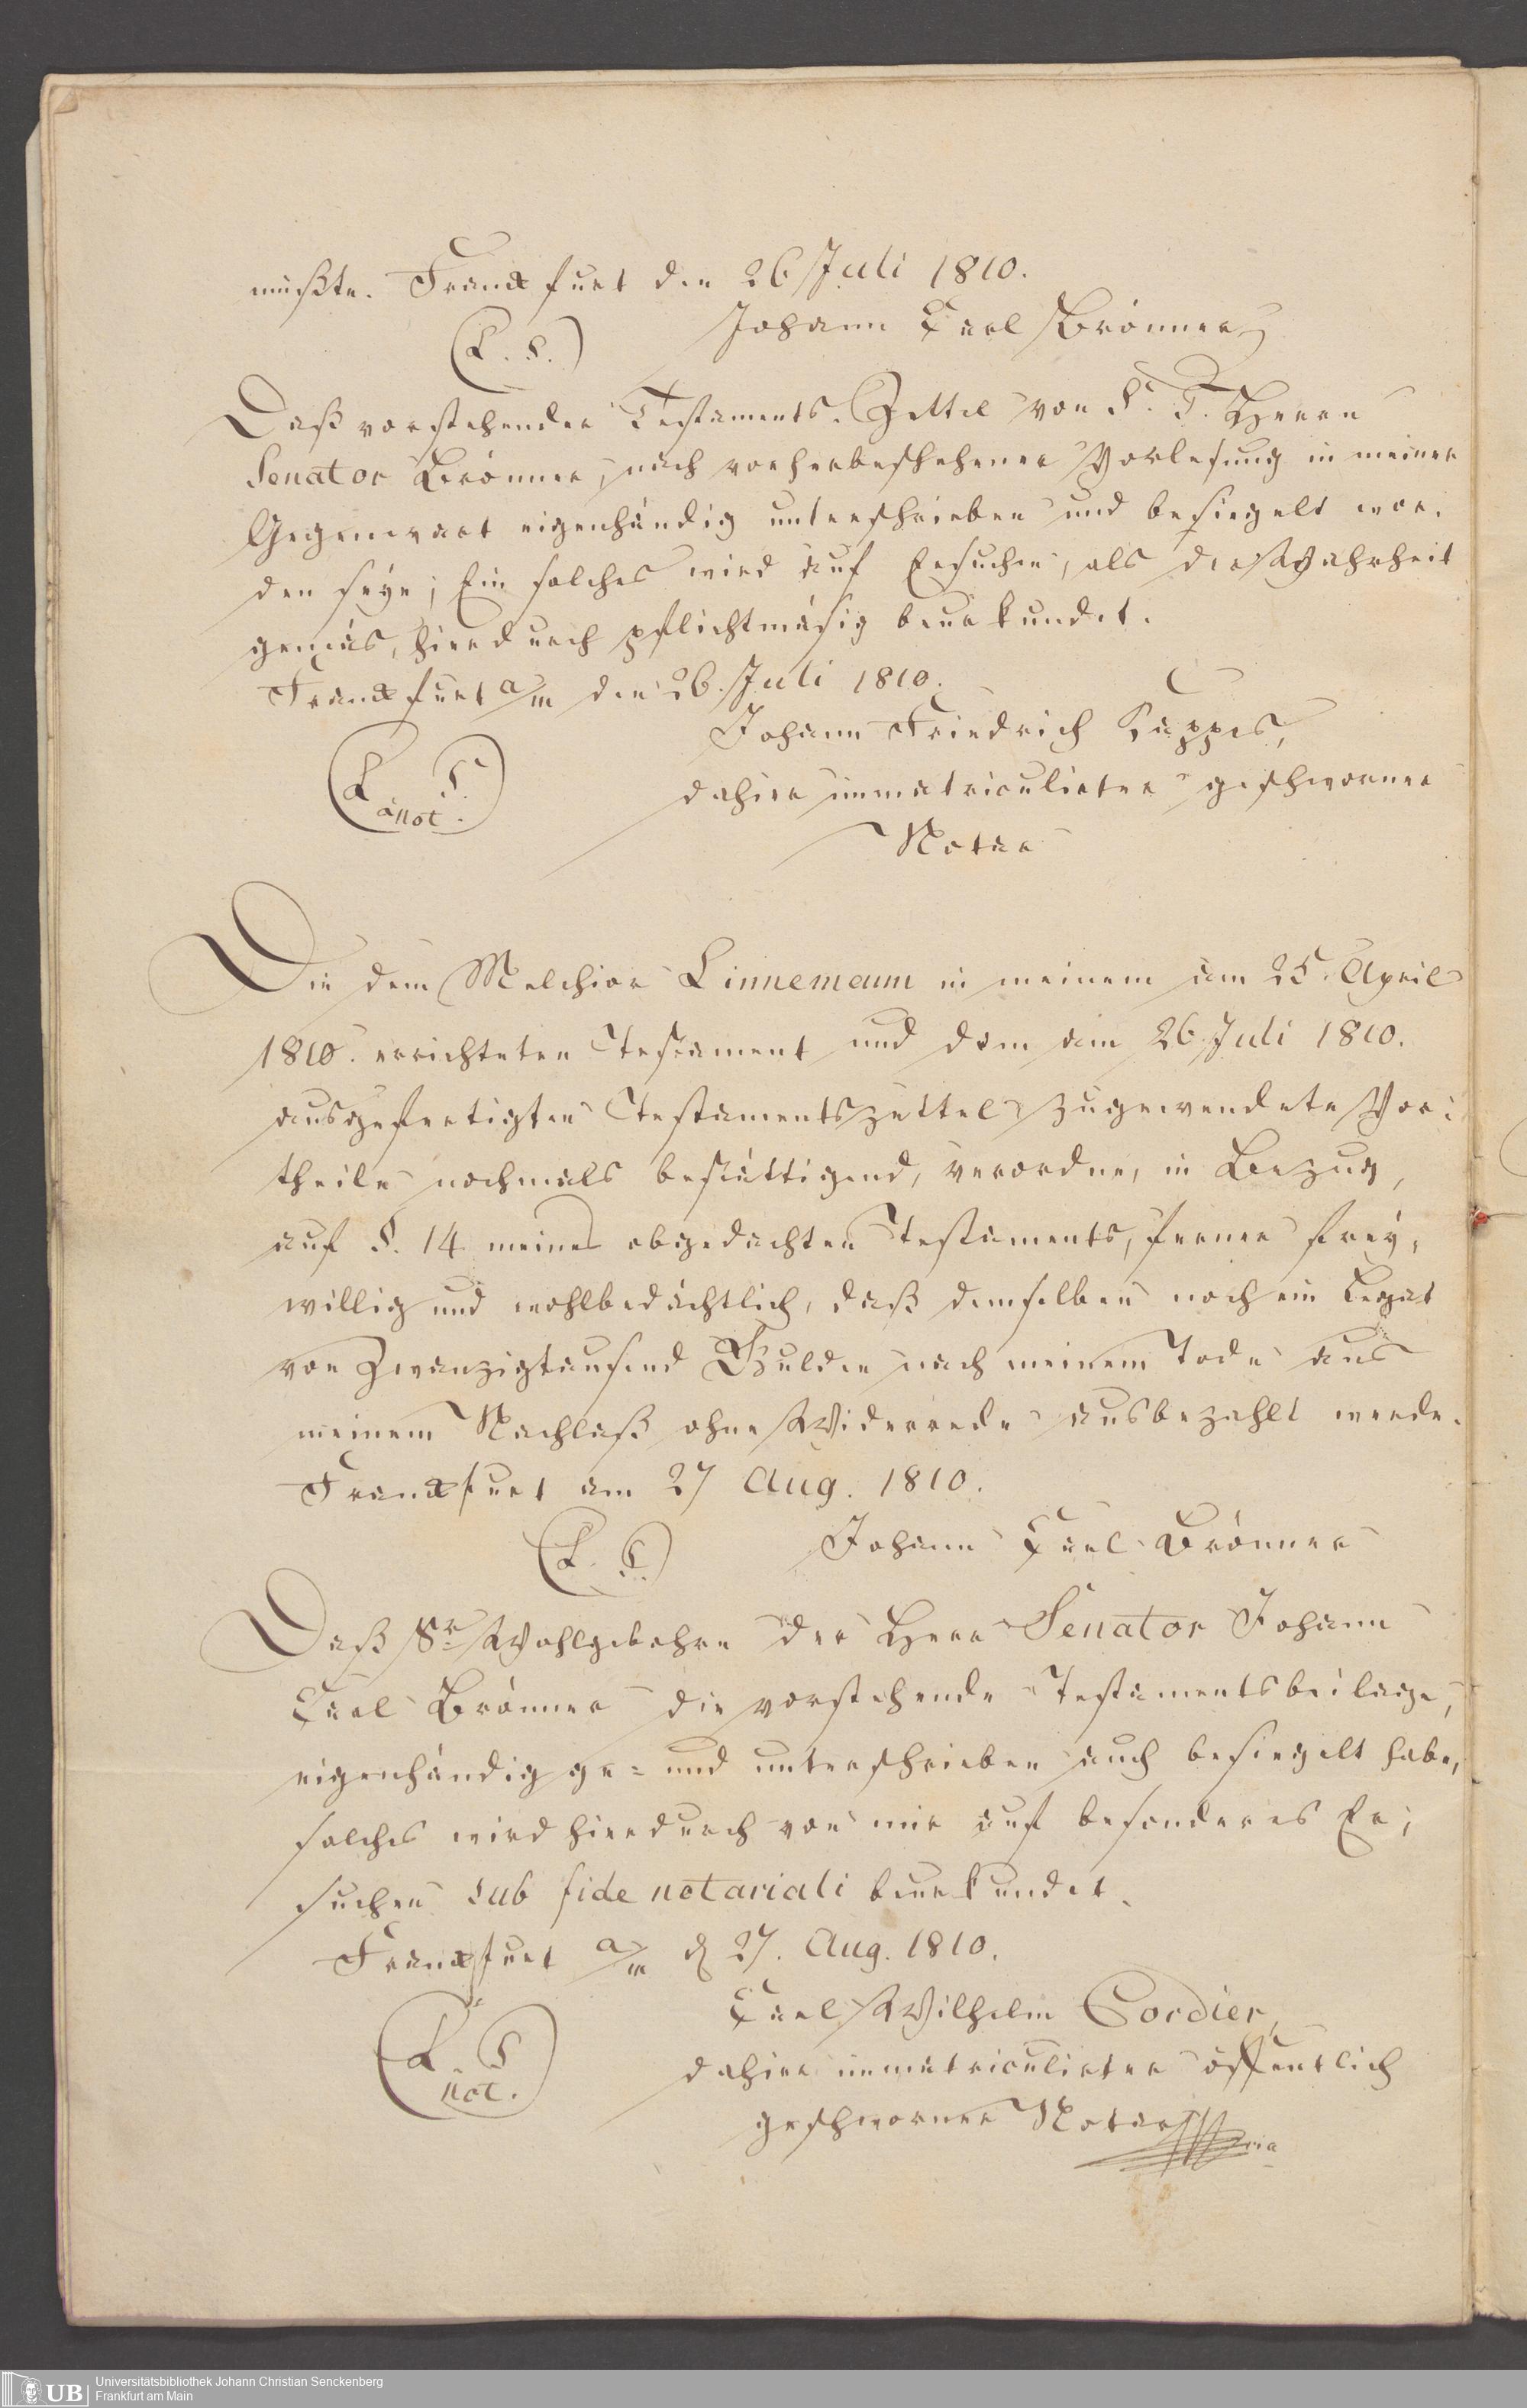 müßte. Frankfurt den 26 Juli 1810.
Johann Carl Brönner
(L. S.)
Daß vorstehender Testaments-Zettel von S. T. Herrn
Senator Brönner, nach vorherbeschehener Vorlesung in meiner
Gegenwart eigenhändig unterschrieben und besiegelt wor-
den seye; Ein solches wird auf Ersuchen, als der Wahrheit
gemäs, hierdurch pflichtmäsig beurkundet.
Frankfurt a/m den 26. Juli 1810.
Johann Friedrich Kappes,
dahier immatriculirter geschworner
Notar
(L. S. not.)
Die dem Melchior Linnemann in meinem am 25. April
1810. errichteten Testament und dem am 26 Juli 1810.
ausgefertigten Testamentszettel zugewendete Vor-
theile nochmals bestättigend, verordne, in Bezug,
auf §. 14 meines obgedachten Testaments, ferner frey-
willig und wohlbedächtlich, daß demselben noch ein Legat
von Zwanzigtausend Gulden nach meinem Tode aus
meinem Nachlaß ohne Widerrede ausbezahlt werde.
Frankfurt am 27 Aug. 1810.
(L. S.) Johann Carl Brönner
Daß Sr Wohlgebohrn der Herr Senator Johann
Carl Brönner die vorstehende Testamentsbeilage,
eigenhändig ge- und unterschrieben auch besiegelt habe,
solches wird hierdurch von mir auf besonderes Er-
suchen sub fide notariali beurkundet.
Frankfurt a/m d 27. Aug. 1810.
Carl Wilhelm Cordier,
(L. S. not.) dahier immatriculirter öffentlich
geschworner Notar
UB Universitätsbibliothek Johann Christian Senckenberg
Frankfurt am Main